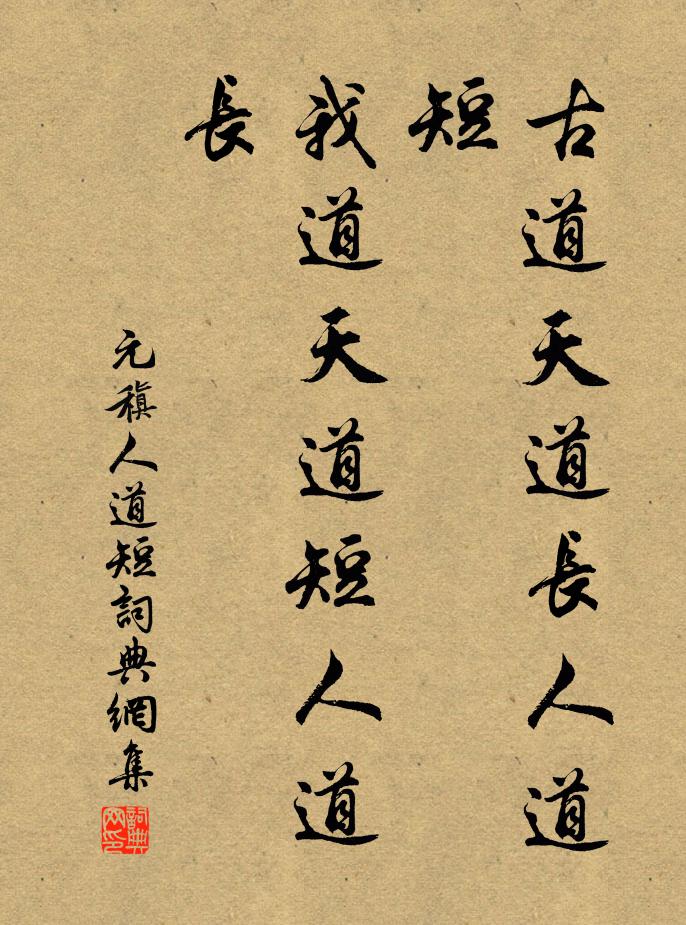 古道天道長人道
短
我道天道短人道
長
元稹人道短詞典網集
詞典
网印